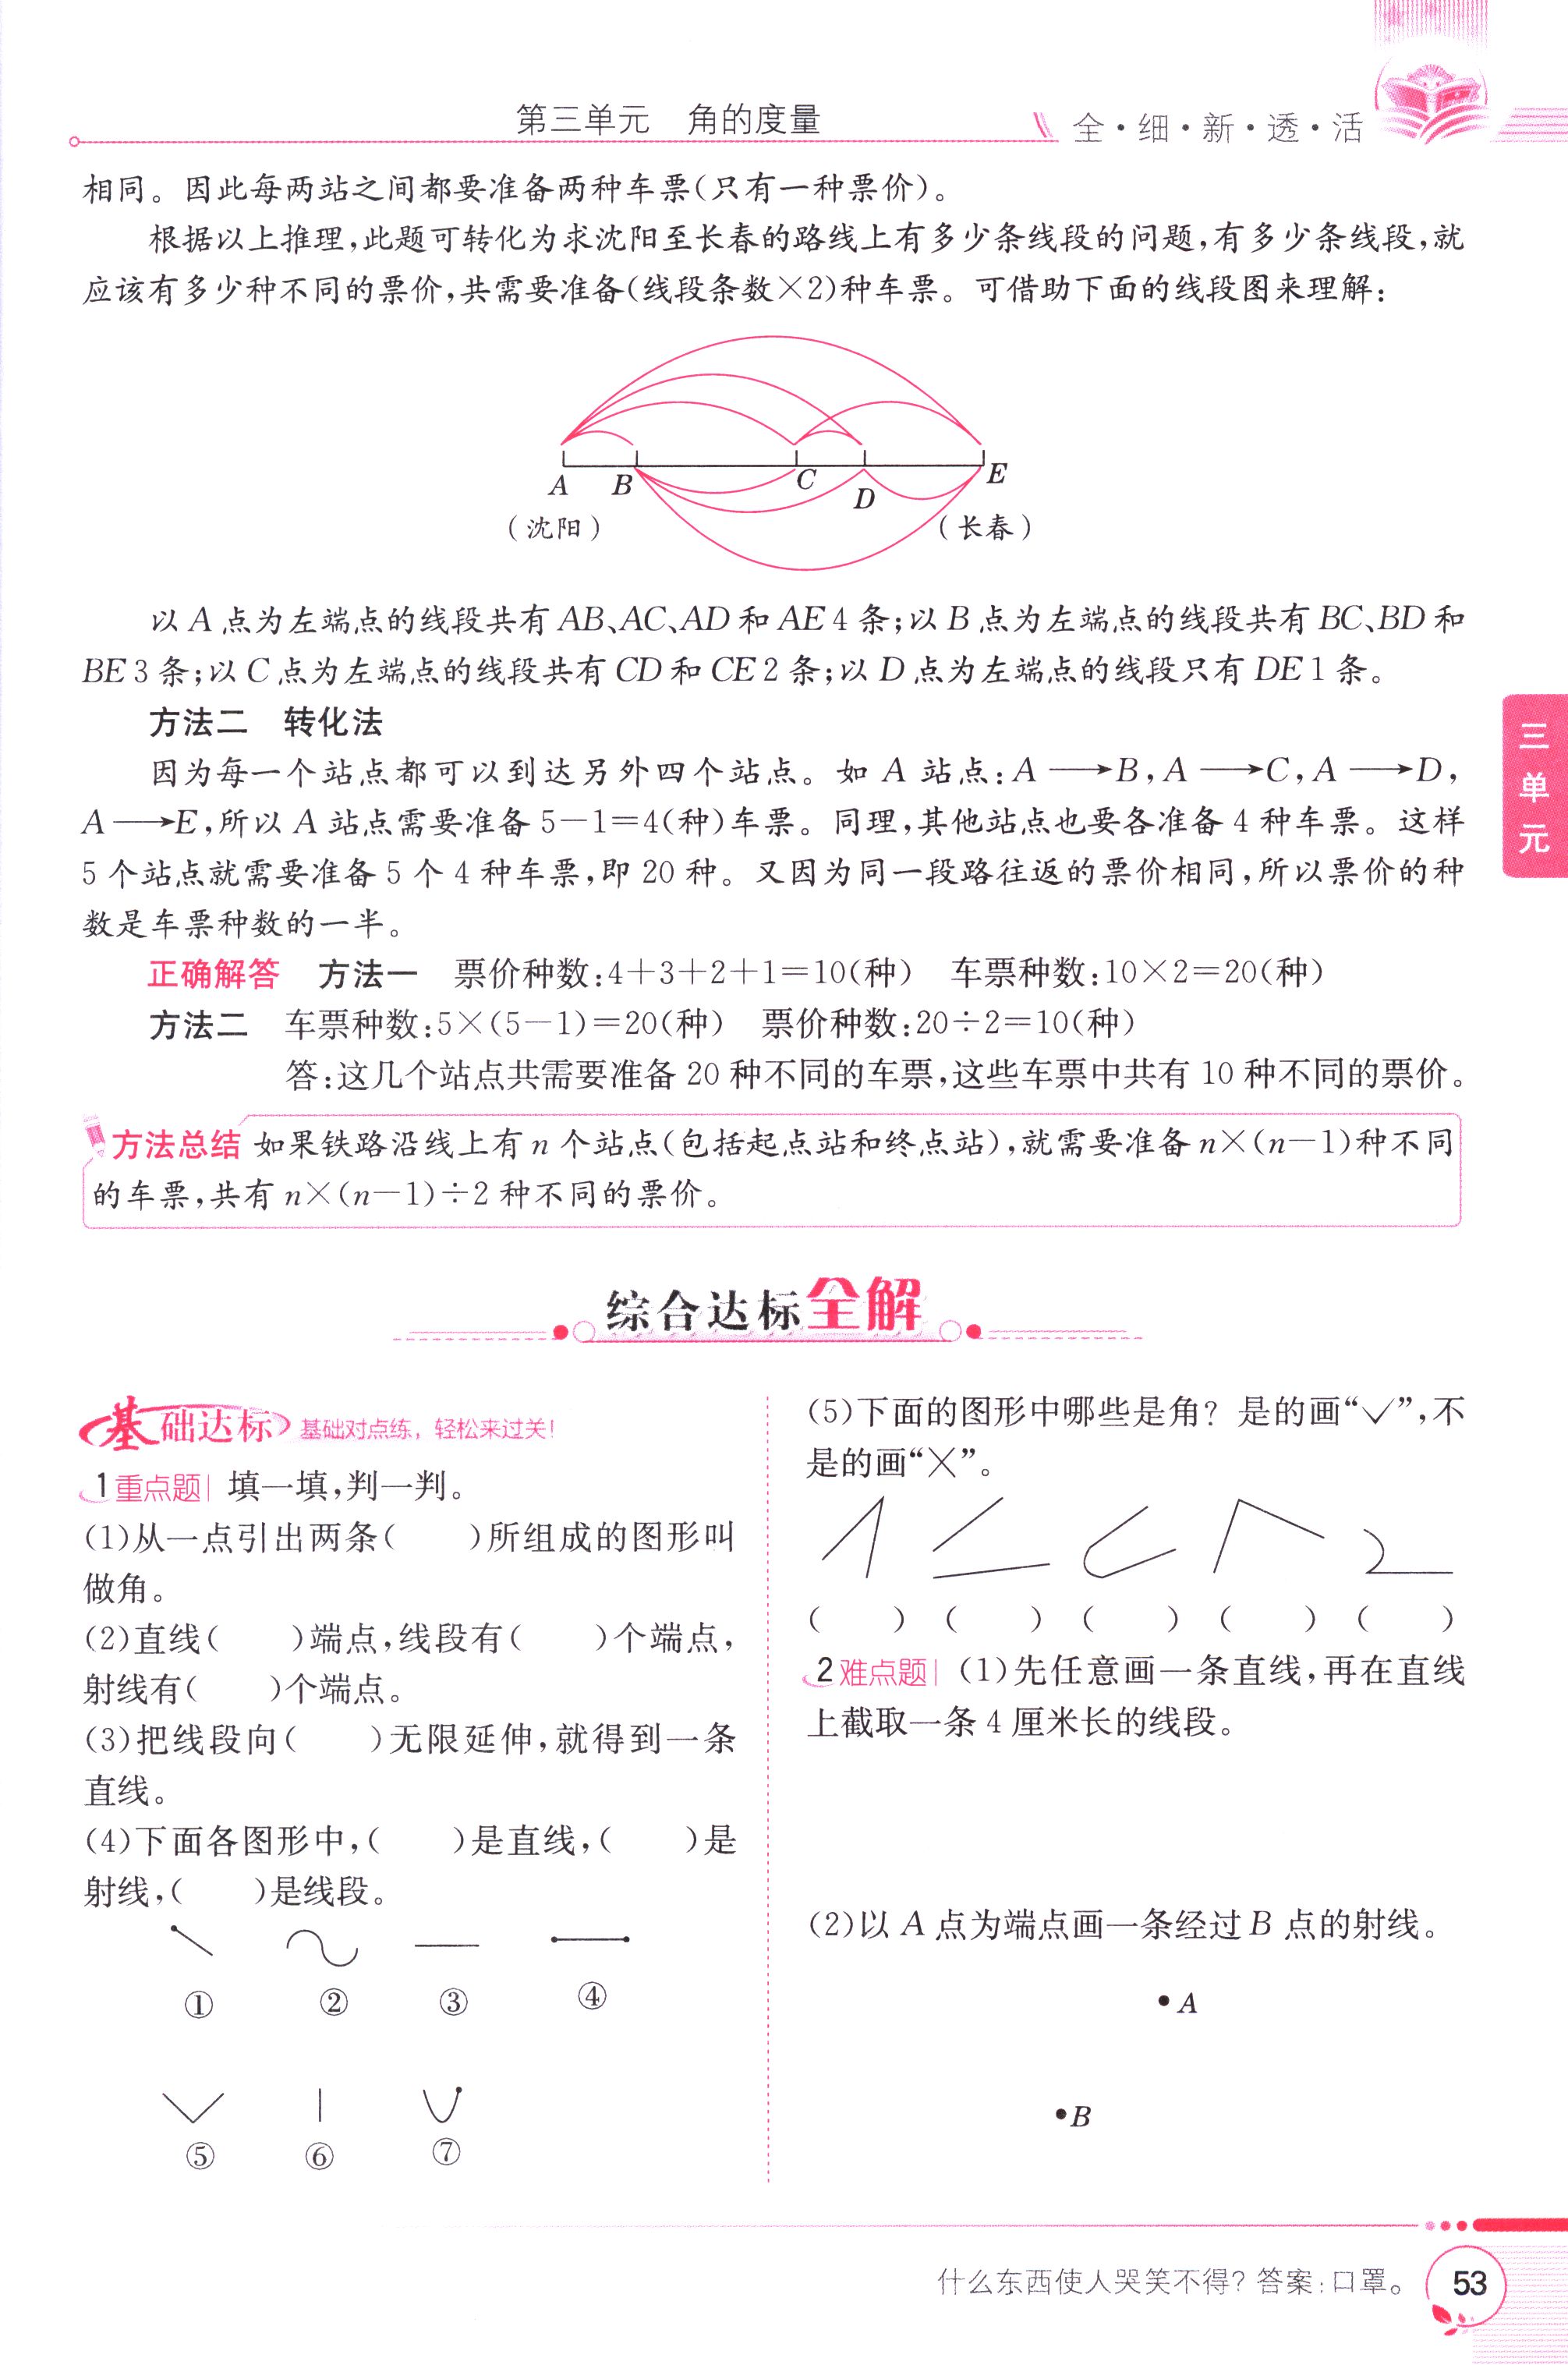 第三单元 角的度量
全·细·新·透·活
相同。因此每两站之间都要准备两种车票(只有一种票价)。
根据以上推理,此题可转化为求沈阳至长春的路线上有多少条线段的问题,有多少条线段,就
应该有多少种不同的票价,共需要准备(线段条数×2)种车票。可借助下面的线段图来理解:
A B C D E
(沈阳) (长春)
以 A 点为左端点的线段共有 AB、AC、AD 和 AE 4 条;以 B 点为左端点的线段共有 BC、BD 和
BE 3 条;以 C 点为左端点的线段共有 CD 和 CE 2 条;以 D 点为左端点的线段只有 DE 1 条。
方法二 转化法
因为每一个站点都可以到达另外四个站点。如 A 站点:A⟶B,A⟶C,A⟶D,
A⟶E,所以 A 站点需要准备 5-1=4(种)车票。同理,其他站点也要各准备 4 种车票。这样
5 个站点就需要准备 5 个 4 种车票,即 20 种。又因为同一段路往返的票价相同,所以票价的种
数是车票种数的一半。
正确解答 方法一 票价种数:4+3+2+1=10(种) 车票种数:10×2=20(种)
方法二 车票种数:5×(5-1)=20(种) 票价种数:20÷2=10(种)
答:这几个站点共需要准备 20 种不同的车票,这些车票中共有 10 种不同的票价。
方法总结 如果铁路沿线上有 n 个站点(包括起点站和终点站),就需要准备 n×(n-1)种不同
的车票,共有 n×(n-1)÷2 种不同的票价。
三单元
综合达标全解
基础达标 基础对点练,轻松来过关!
1 重点题 填一填,判一判。
(1)从一点引出两条( )所组成的图形叫
做角。
(2)直线( )端点,线段有( )个端点,
射线有( )个端点。
(3)把线段向( )无限延伸,就得到一条
直线。
(4)下面各图形中,( )是直线,( )是
射线,( )是线段。
① ② ③ ④
⑤ ⑥ ⑦
(5)下面的图形中哪些是角?是的画“√”,不
是的画“×”。
( ) ( ) ( ) ( ) ( )
2 难点题 (1)先任意画一条直线,再在直线
上截取一条 4 厘米长的线段。
(2)以 A 点为端点画一条经过 B 点的射线。
A
B
什么东西使人哭笑不得?答案:口罩。
53